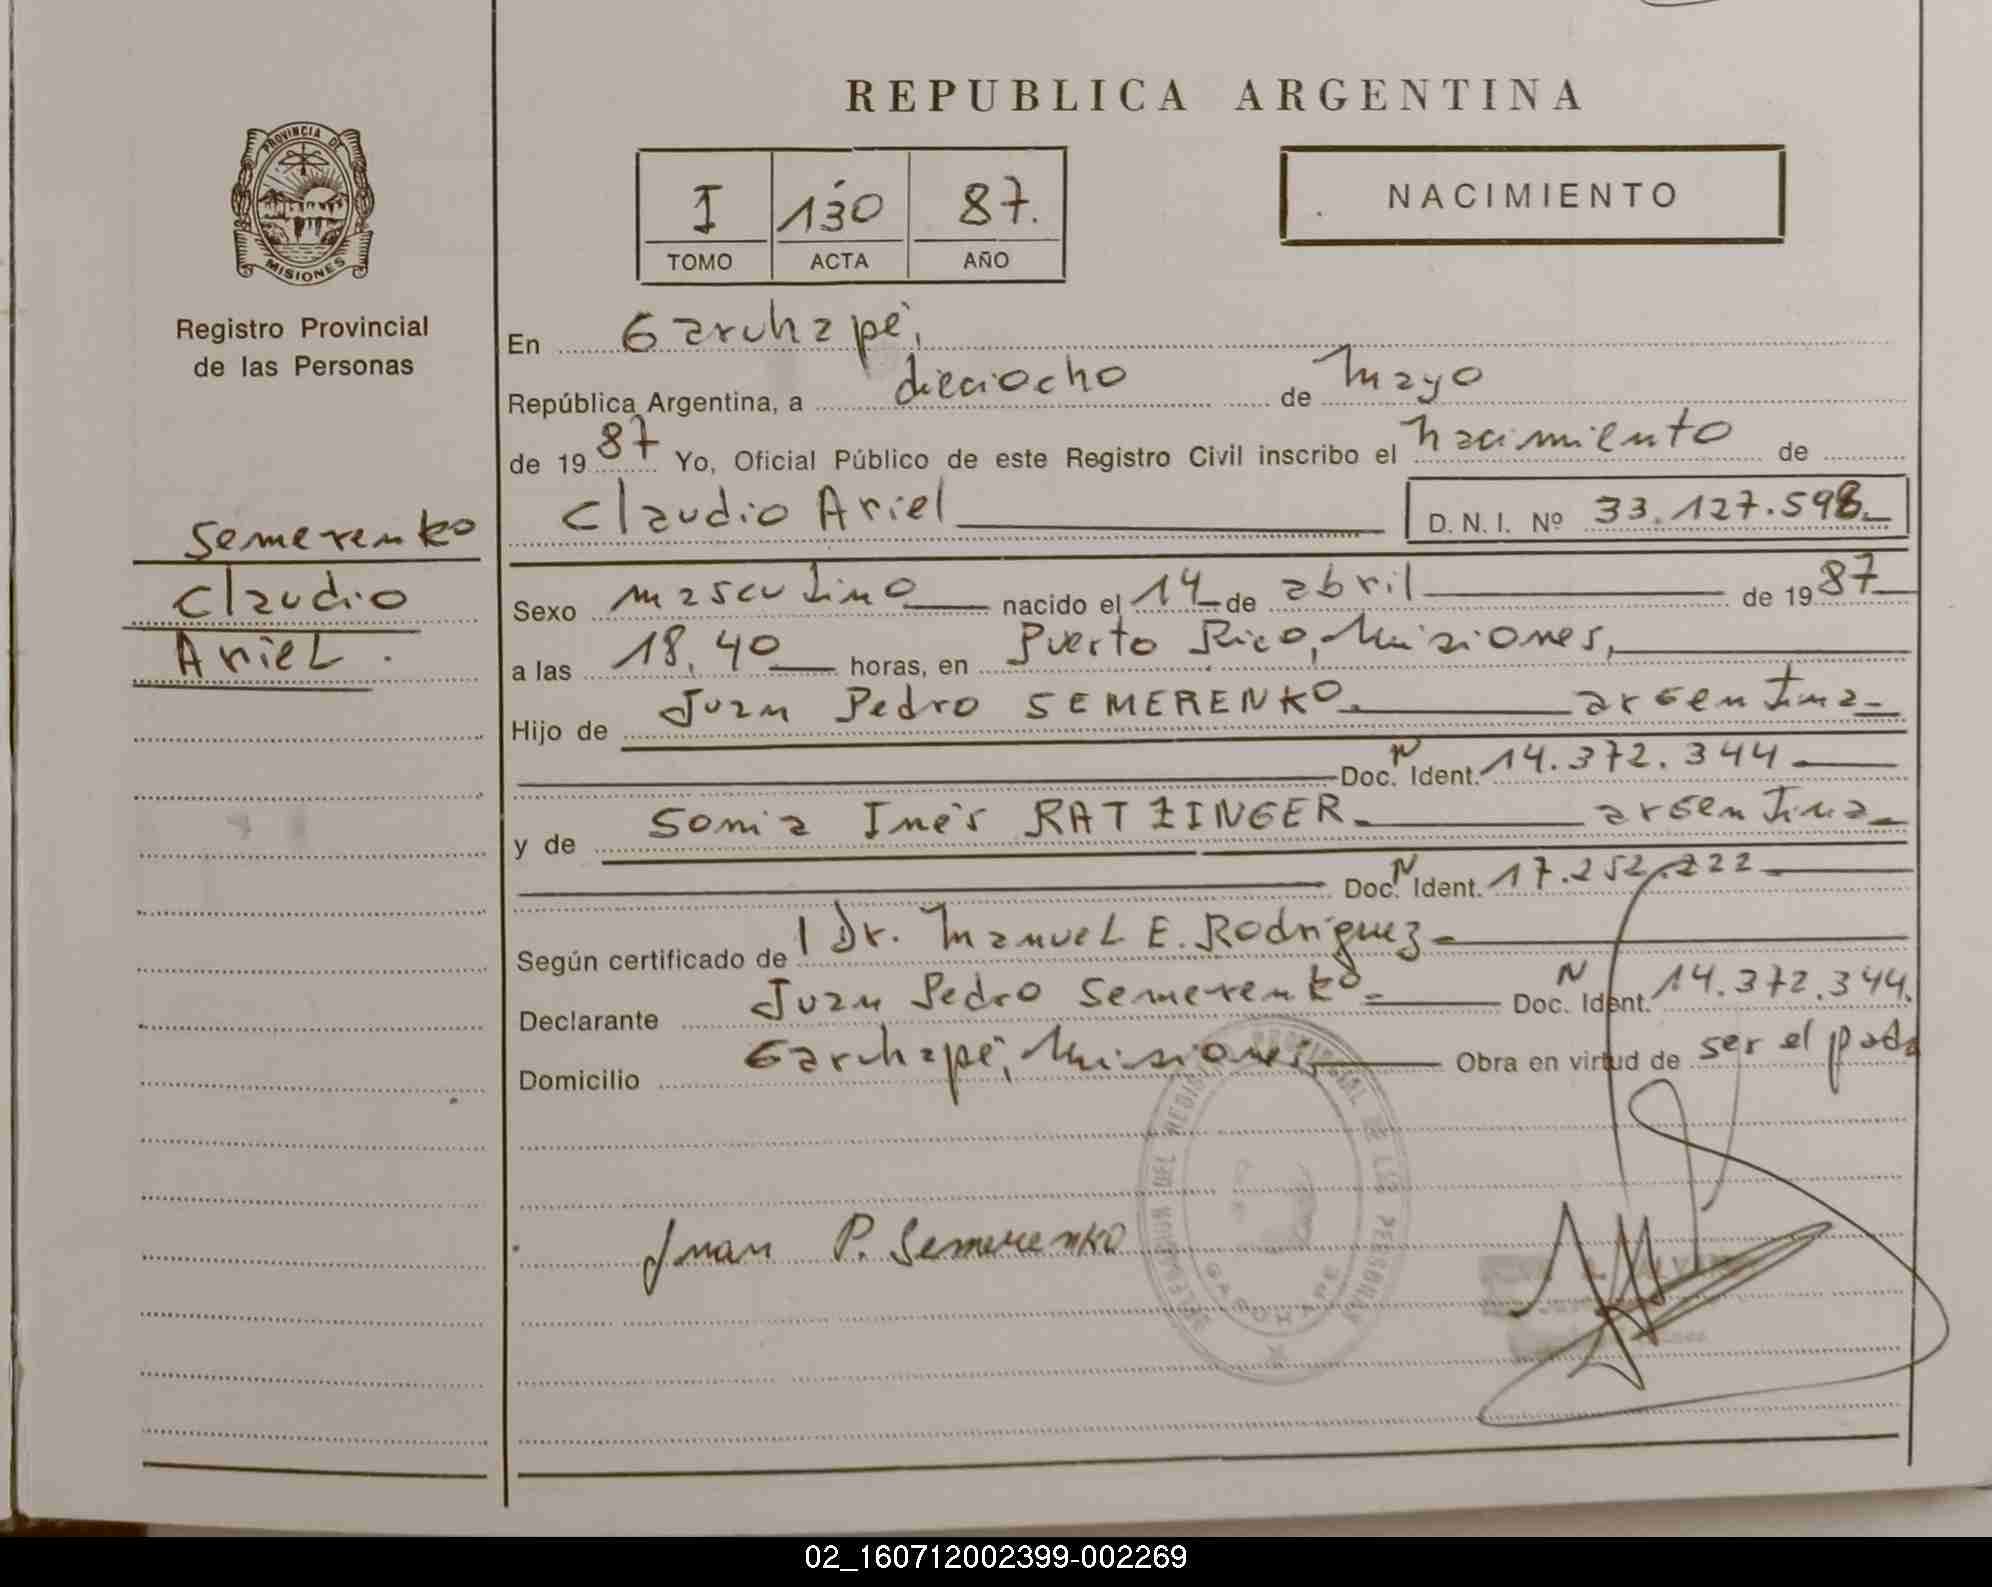 REPUBLICA ARGENTINA
PROVINCIA DE
MISIONES
Registro Provincial
de las Personas
I 130 87.
TOMO ACTA AÑO
NACIMIENTO
Semerenko
Claudio
Ariel.
En Garuhapé,
República Argentina, a dieciocho de Mayo
de 1987 Yo, Oficial Público de este Registro Civil inscribo el nacimiento de
Claudio Ariel D. N. I. Nº 33.127.598
Sexo masculino nacido el 14 de abril de 1987
a las 18.40 horas, en Puerto Rico, Misiones,
Hijo de Juan Pedro SEMERENKO. argentina
Doc. N Ident. 14.372.344
y de Sonia Inés RATZINGER. argentina
Doc. N Ident. 17.252.222
Según certificado de Dr. Manuel E. Rodríguez
Declarante Juan Pedro Semerenko. N Doc. Ident. 14.372.344.
Domicilio Garuhapé, Misiones, Obra en virtud de ser el padre
Juan P. Semerenko
DEL REGISTRO PROVINCIAL DE LAS PERSONAS
GARUHAPE
02_160712002399-002269